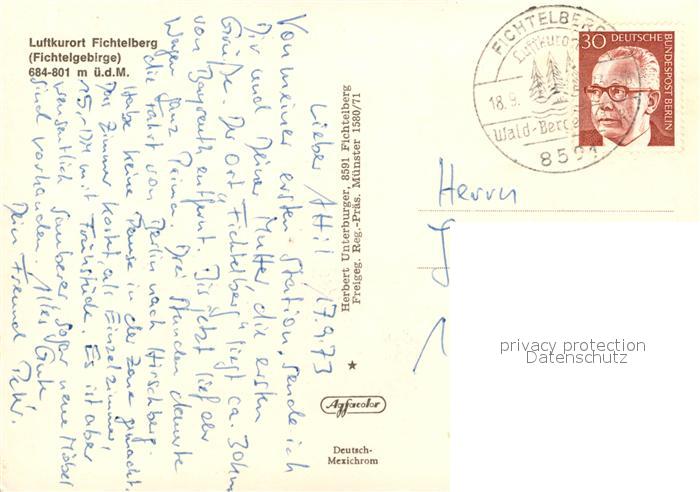 Luftkurort Fichtelberg
(Fichtelgebirge)
684-801 m ü.d.M.
17.9.73
Lieber Attil
Von meiner ersten Station, sende ich
Dir und Deiner Mutter die ersten
Grüße. Der Ort "Fichtelberg" liegt ca. 30km
von Bayreuth entfernt. Bis jetzt lief der
Wagen ganz Prima. Drei Stunden dauerte
die Fahrt von Berlin nach Hirschberg.
Habe keine Pause in der Zone gemacht.
Das Zimmer kostet, als Einzelzimmer,
15,-DM mit Frühstück. Es ist aber
wesentlich sauberer, sogar neue Möbel
sind vorhanden. Alles Gute
Dein Freund Petr.
Herbert Unterburger, 8591 Fichtelberg
Freigeg. Reg.-Präs. Münster 1580/71
Agfacolor
Deutsch-
Mexichrom
FICHTELBERG
Luftkuror
18.9.
Wald-Berge
8591
30 DEUTSCHE
BUNDESPOST BERLIN
Herrn
privacy protection
Datenschutz